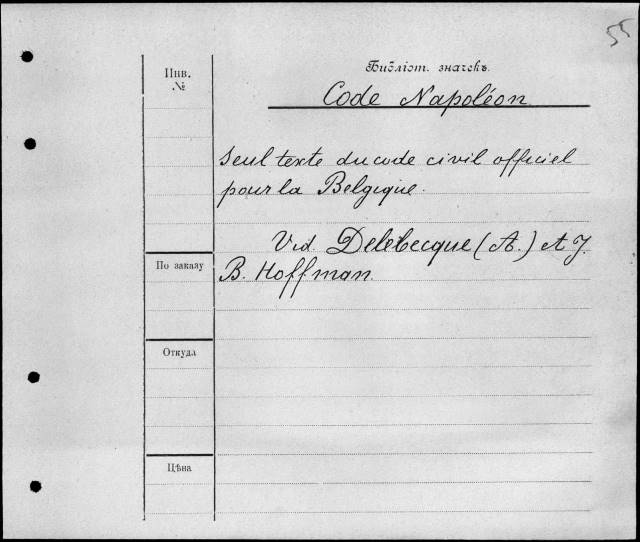 55
Инв.
№
Библіот. значекъ.
Code Napoléon
Seul texte du code civil officiel
pour la Belgique.
Vid. Delebecque (A.) et J.
B. Hoffman.
По заказу
Откуда
Цѣна